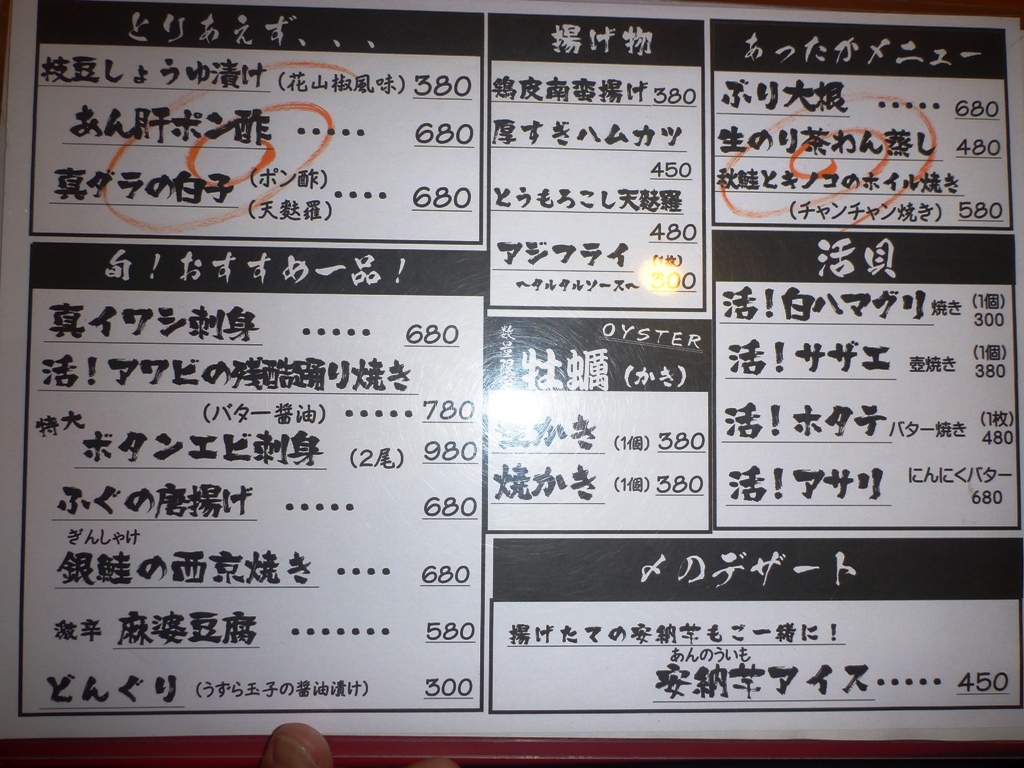 とりあえず、、、
枝豆しょうゆ漬け (花山椒風味) 380
あん肝ポン酢 ・・・・・ 680
真ダラの白子 (ポン酢) (天麩羅) ・・・・ 680
旬！おすすめ一品！
真イワシ刺身 ・・・・・ 680
活！アワビの残酷踊り焼き
(バター醤油) ・・・・・ 780
特大 ボタンエビ刺身 (2尾) 980
ふぐの唐揚げ ・・・・・ 680
ぎんしゃけ
銀鮭の西京焼き ・・・・ 680
激辛 麻婆豆腐 ・・・・・・・ 580
どんぐり (うずら玉子の醤油漬け) 300
揚げ物
鶏皮南蛮揚げ 380
厚すぎハムカツ
450
とうもろこし天麩羅
480
アジフライ (1枚) 300
〜タルタルソース〜
OYSTER
牡蠣 (かき)
かき (1個) 380
焼かき (1個) 380
あったかメニュー
ぶり大根 ・・・・・ 680
生のり茶わん蒸し 480
秋鮭とキノコのホイル焼き
(チャンチャン焼き) 580
活貝
活！白ハマグリ 焼き (1個) 300
活！サザエ 壺焼き (1個) 380
活！ホタテ バター焼き (1枚) 480
活！アサリ にんにくバター 680
〆のデザート
揚げたての安納芋もご一緒に！
あんのういも
安納芋アイス ・・・・・ 450